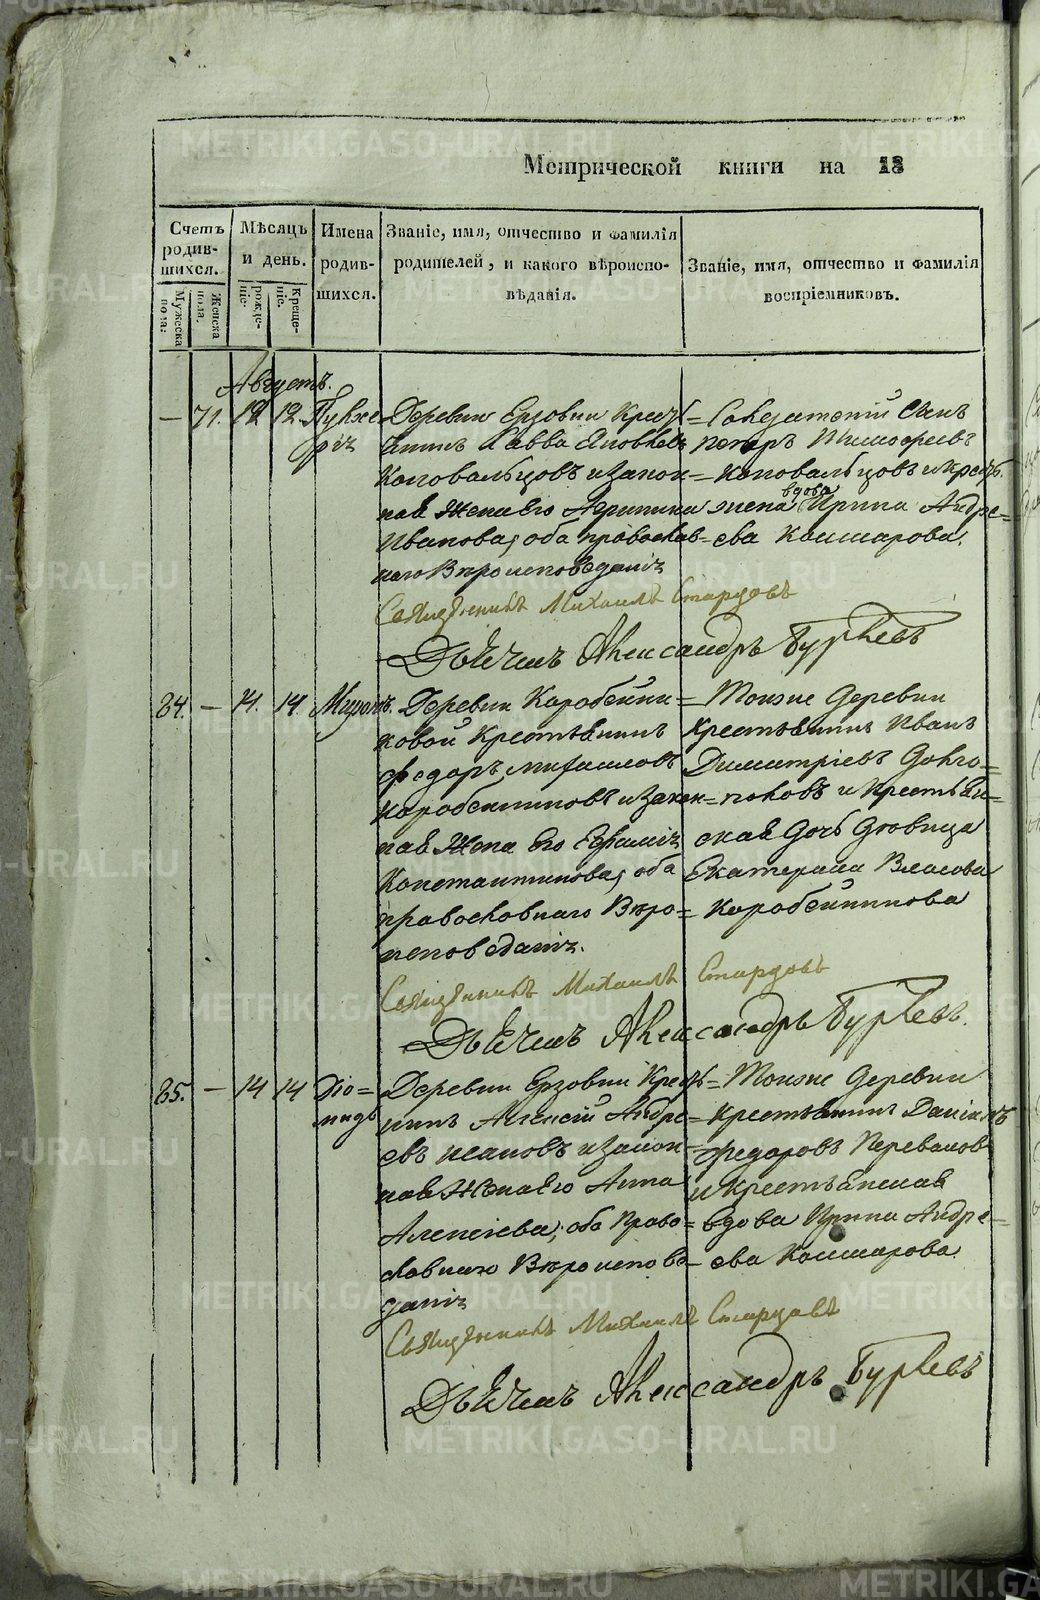 Метрической книги на 18
Счетъ родив-шихся.
Мужеска пола.
Женска пола.
Мѣсяцъ и день.
рожде-ніе.
Креще-ніе.
Имена родив-шихся.
Званіе, имя, отчество и фамилія родителей, и какого вѣроиспо-вѣданія.
Званіе, имя, отчество и фамилія воспріемниковъ.
Августъ.
— 71. 12 12. Пулхе
рія
Деревни Ерзовки Крест
янинъ Савва Яковлевъ
Коновальцовъ и закон
ная жена его Агрипина
Ивановна, оба православ
наго Вѣроисповеданія
= Солдатскій сынъ
петръ Тимофеевъ
= Коновальцовъ и крест.
жена вдова Ирина Андре=
= ева Кошкарова.
Священникъ Михаилъ Старцовъ
Дьячекъ Александръ Бурлевъ
84. — 14. 14. Миронъ.
Деревни Коробейни
ковой Крестьянинъ
федоръ михаиловъ
коробейниковъ и закон
ная жена его Евфимія
Константинова, оба
православнаго Вѣро=
исповеданія.
= Тоиже деревни
Крестьянинъ Иванъ
Димитріевъ Долго=
= половъ и крестьян=
ская дочь девица
Екатерина Власова
Коробейникова
Священникъ Михаилъ Старцовъ
Дьячекъ Александръ Бурлевъ.
85. — 14 14 Діо=
мидъ
Деревни Ерзовки Крест
нинъ Алексій Андре
евъ исаковъ и закон
ная жена его Анна
Алексіева, оба Право=
славнаго Вѣроисповѣ
данія
= Тоиже деревни
= Крестьянинъ Даніилъ
федоровъ Переваловъ
и Крестьянская
вдова Ирина Андре=
= ева Кошкарова
Священникъ Михаилъ Старцовъ
Дьячекъ Александръ Бурлевъ
METRIKI.GASO-URAL.RU